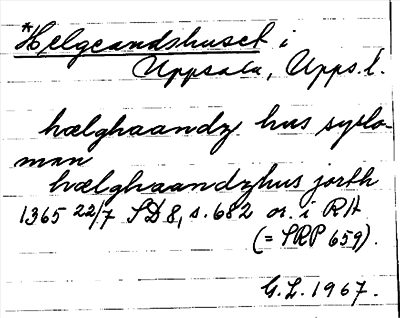 *Helgeandshuset i
Uppsala, Upps.l.
hælghaandz hus syslo-
man
hælghaandzhus jorth
1365 22/7 SD 8, s. 682 or. i RA
(= SRP 659).
G.L. 1967.